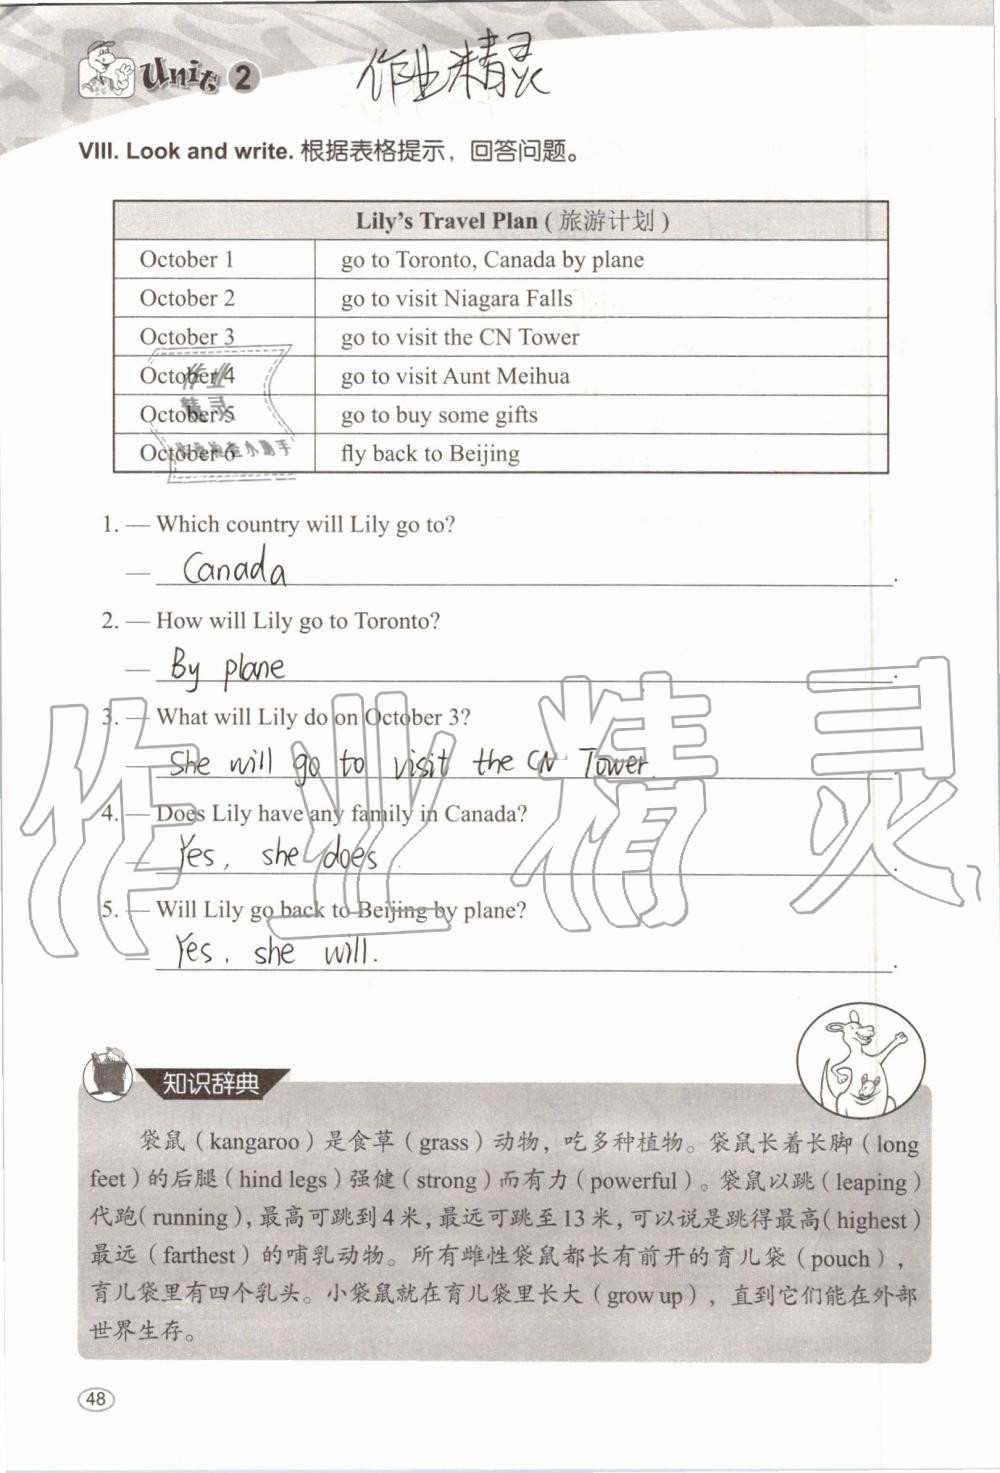 Unit 2
作业精灵
VIII. Look and write. 根据表格提示，回答问题。
Lily's Travel Plan ( 旅游计划 )
October 1 go to Toronto, Canada by plane
October 2 go to visit Niagara Falls
October 3 go to visit the CN Tower
October 4 go to visit Aunt Meihua
October 5 go to buy some gifts
October 6 fly back to Beijing
作业
精灵
1. — Which country will Lily go to?
— Canada.
2. — How will Lily go to Toronto?
— By plane.
3. — What will Lily do on October 3?
— She will go to visit the CN Tower.
4. — Does Lily have any family in Canada?
— Yes, she does.
5. — Will Lily go back to Beijing by plane?
— Yes, she will.
作业精灵
知识辞典
袋鼠（kangaroo）是食草（grass）动物，吃多种植物。袋鼠长着长脚（long
feet）的后腿（hind legs）强健（strong）而有力（powerful）。袋鼠以跳（leaping）
代跑（running），最高可跳到4米，最远可跳至13米，可以说是跳得最高（highest）
最远（farthest）的哺乳动物。所有雌性袋鼠都长有前开的育儿袋（pouch），
育儿袋里有四个乳头。小袋鼠就在育儿袋里长大（grow up），直到它们能在外部
世界生存。
48